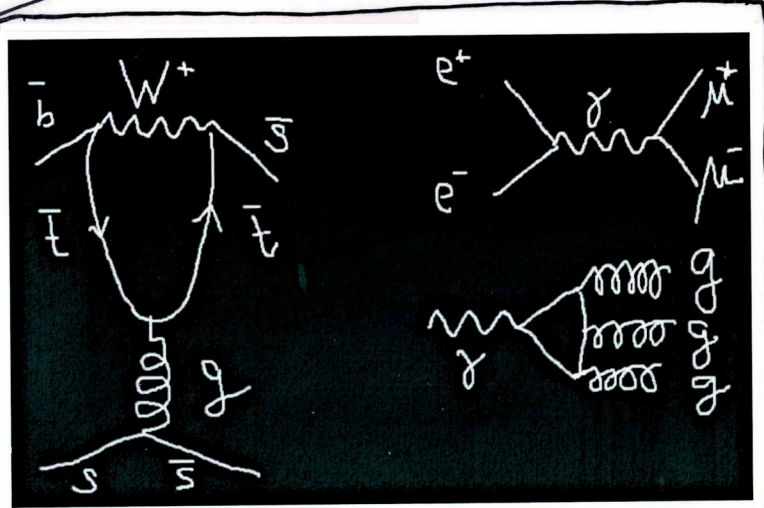 W⁺
b̄ s̄
t̄ t̄
g
s s̄
e⁺ γ μ⁺
e⁻ μ⁻
γ g
g
g